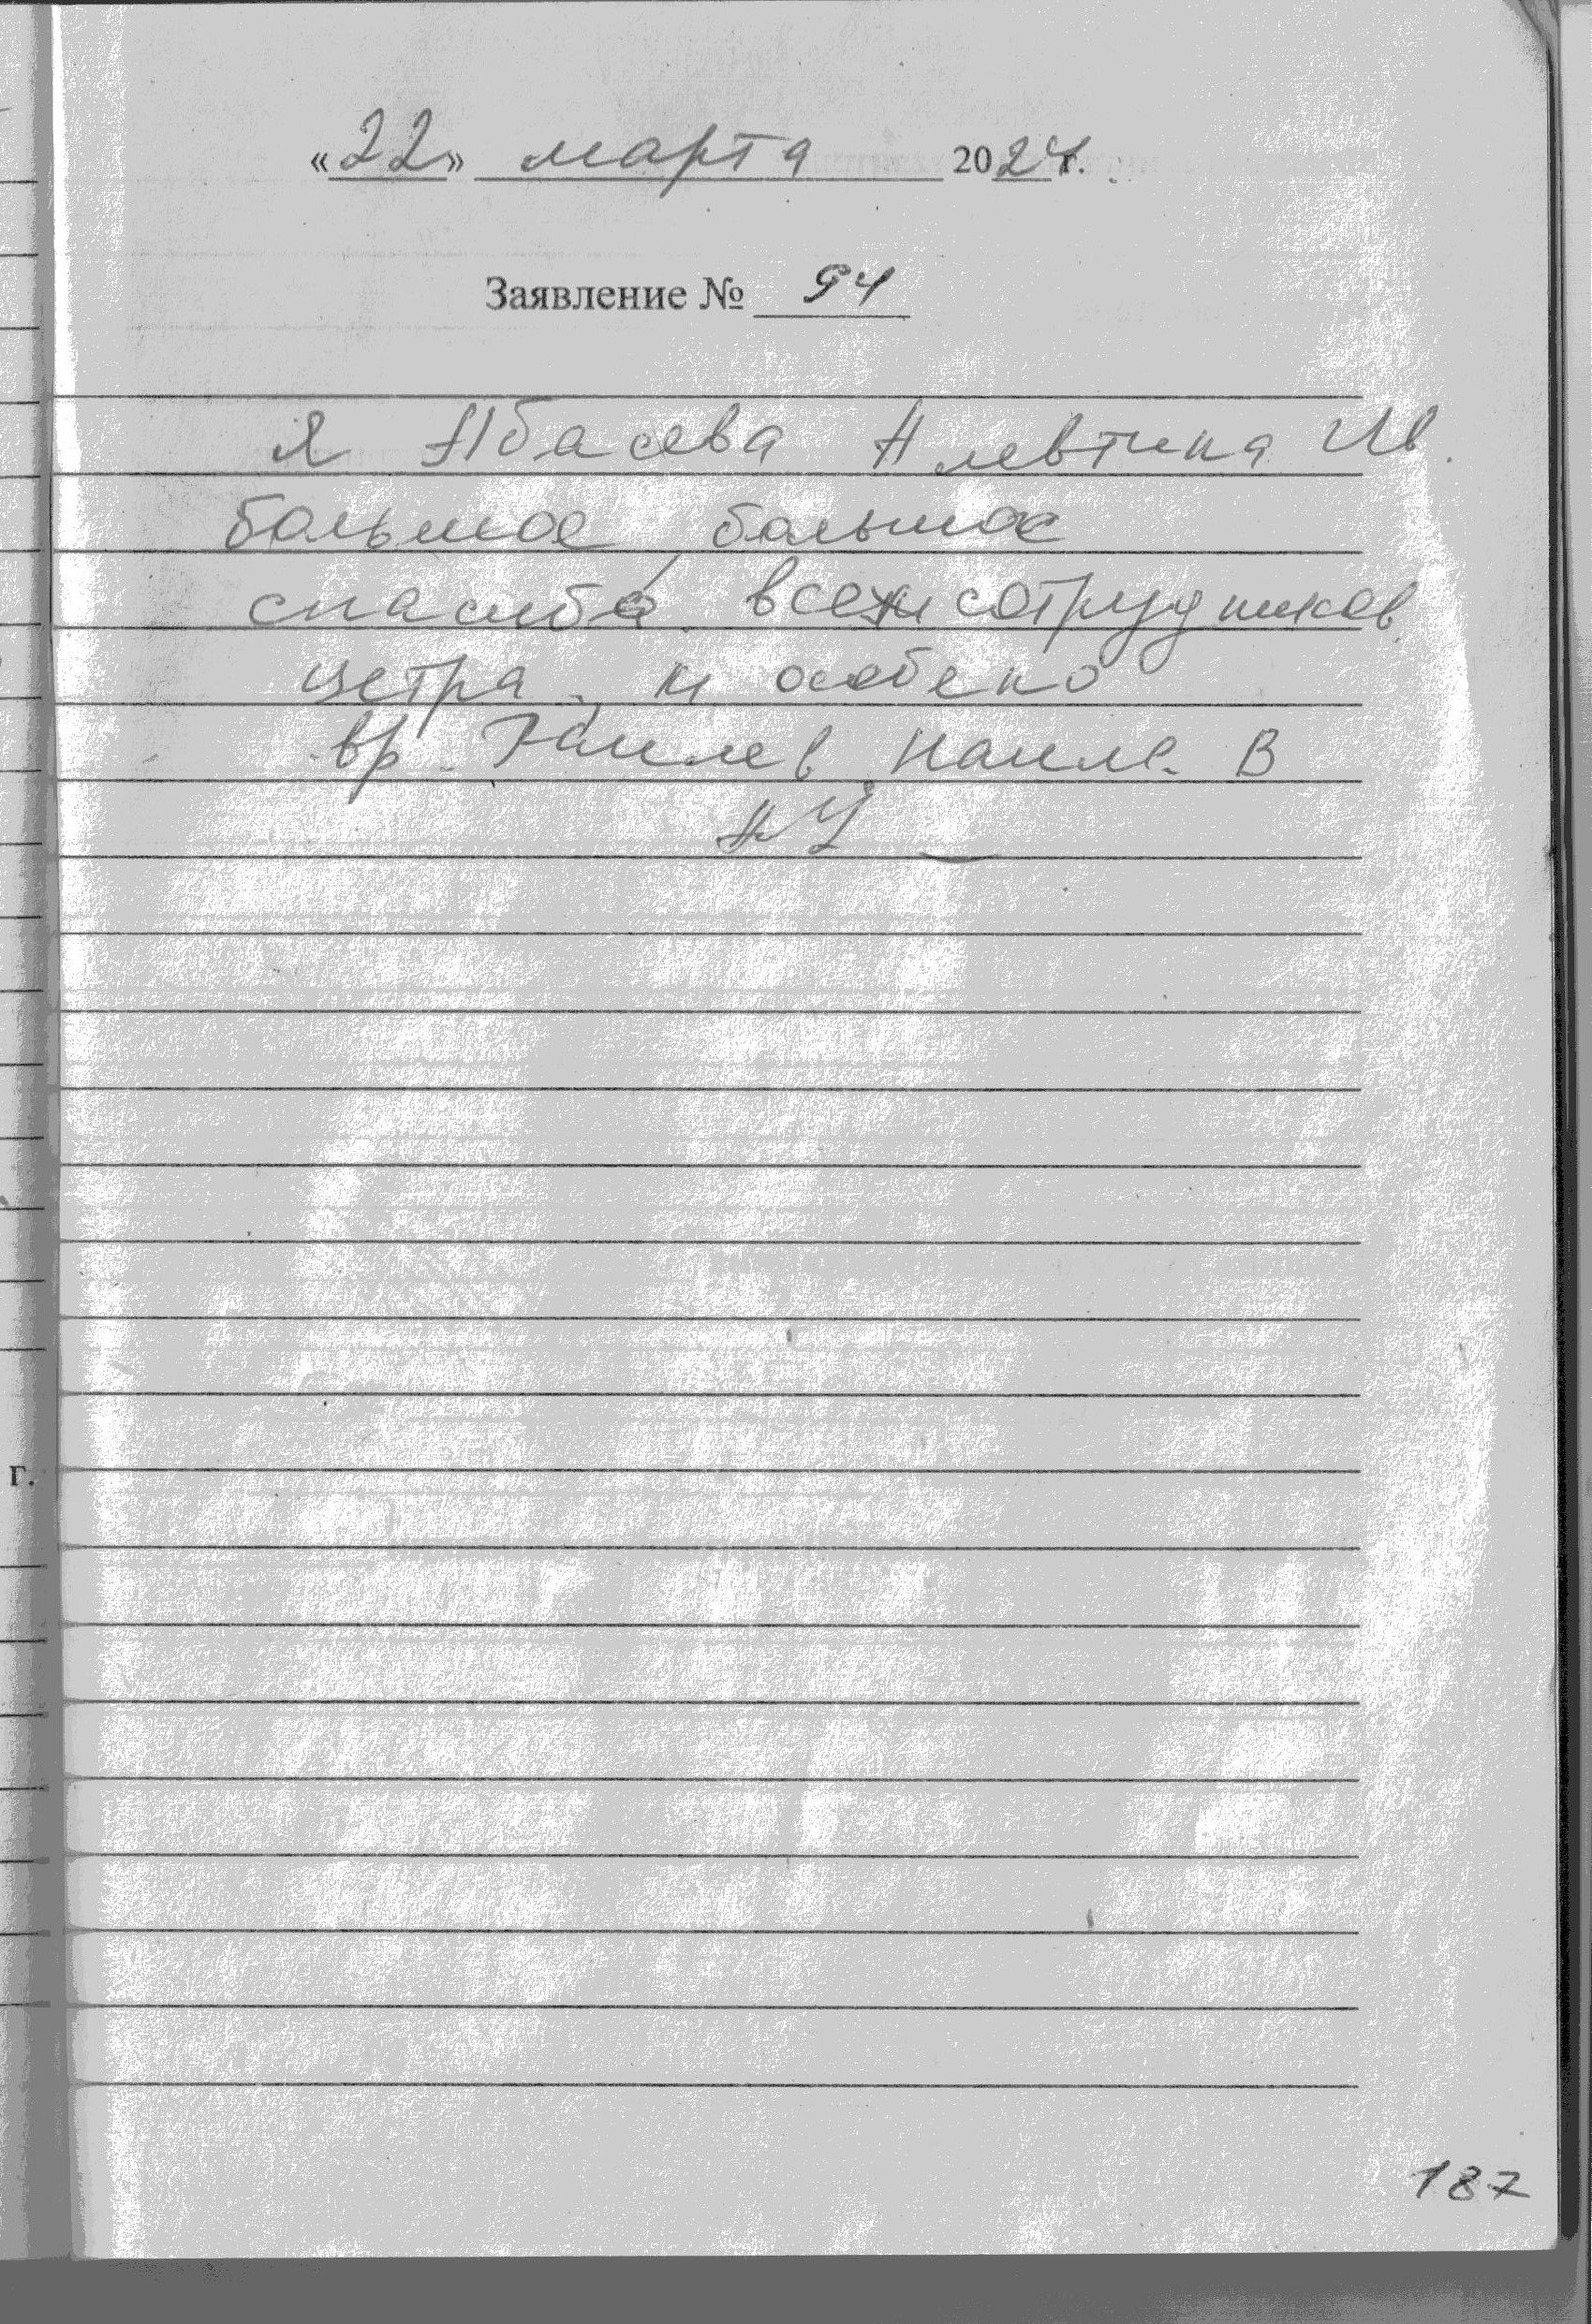 «22» марта 2024г.
Заявление № 94
Я Абасева Алевтина Ив.
большое, большое
спасибо всем сотрудников
цетра. и особено
вр. Наиле В
187
г.